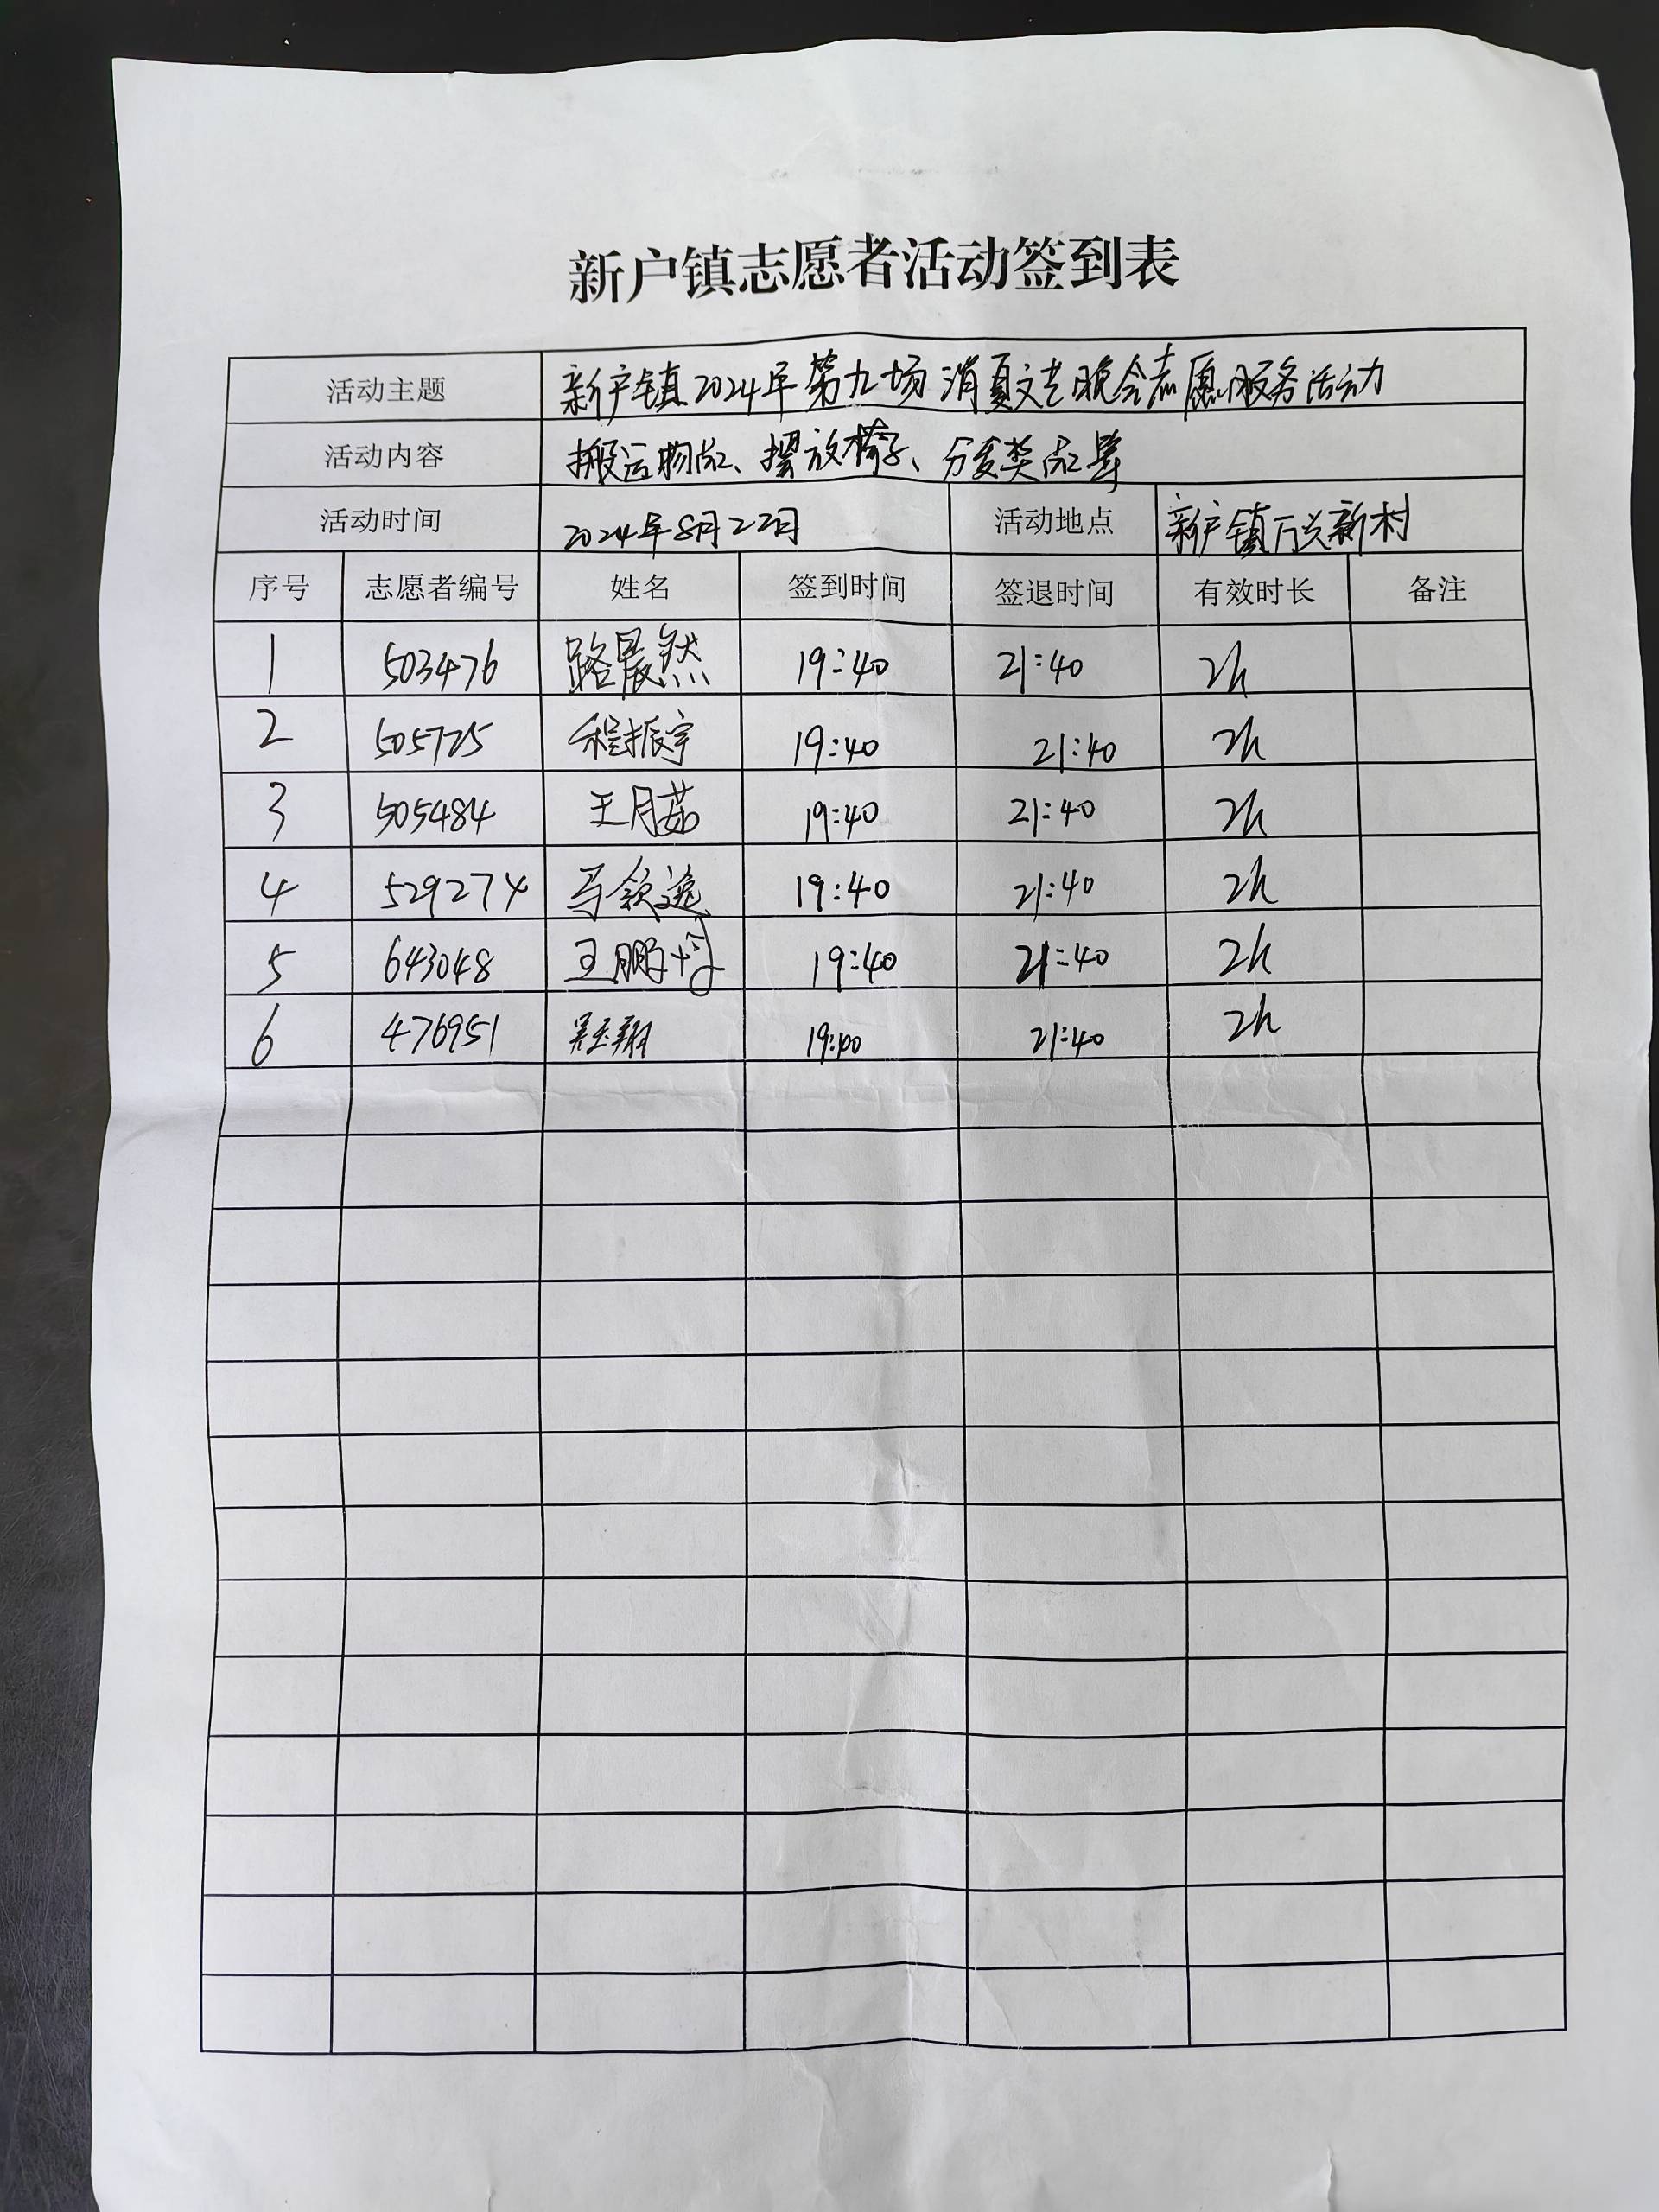 新户镇志愿者活动签到表
活动主题 新户镇2024年第九场消夏文艺晚会志愿服务活动
活动内容 搬运物品、摆放椅子、分发奖品等
活动时间 2024年8月22日 活动地点 新户镇万兴新村
序号 志愿者编号 姓名 签到时间 签退时间 有效时长 备注
1 503476 路晨然 19:40 21:40 2h
2 505725 程振宇 19:40 21:40 2h
3 505484 王月茹 19:40 21:40 2h
4 529274 马领逸 19:40 21:40 2h
5 643048 王鹏 19:40 21:40 2h
6 476951 吴玉翔 19:40 21:40 2h